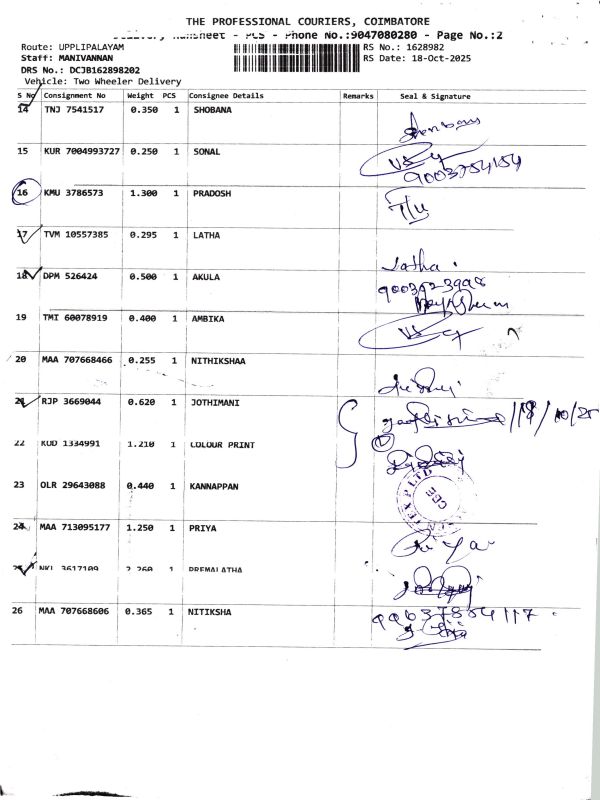 THE PROFESSIONAL COURIERS, COIMBATORE
Delivery Runsheet - PCS - Phone No.:9047080280 - Page No.:2
Route: UPPLIPALAYAM
RS No.: 1628982
Staff: MANIVANNAN
RS Date: 18-Oct-2025
DRS No.: DCJB162898202
Vehicle: Two Wheeler Delivery
S No Consignment No Weight PCS Consignee Details Remarks Seal & Signature
14 TNJ 7541517 0.350 1 SHOBANA
15 KUR 7004993727 0.250 1 SONAL
9003754154
16 KMU 3786573 1.300 1 PRADOSH
17 TVM 10557385 0.295 1 LATHA
Latha
18 DPM 526424 0.500 1 AKULA
19 TMI 60078919 0.400 1 AMBIKA
20 MAA 707668466 0.255 1 NITHIKSHAA
21 RJP 3669044 0.620 1 JOTHIMANI
18/10/25
22 KUD 1334991 1.210 1 COLOUR PRINT
23 OLR 29643088 0.440 1 KANNAPPAN
CBE
24 MAA 713095177 1.250 1 PRIYA
25 NKL 3617109 2.260 1 PREMALATHA
26 MAA 707668606 0.365 1 NITIKSHA